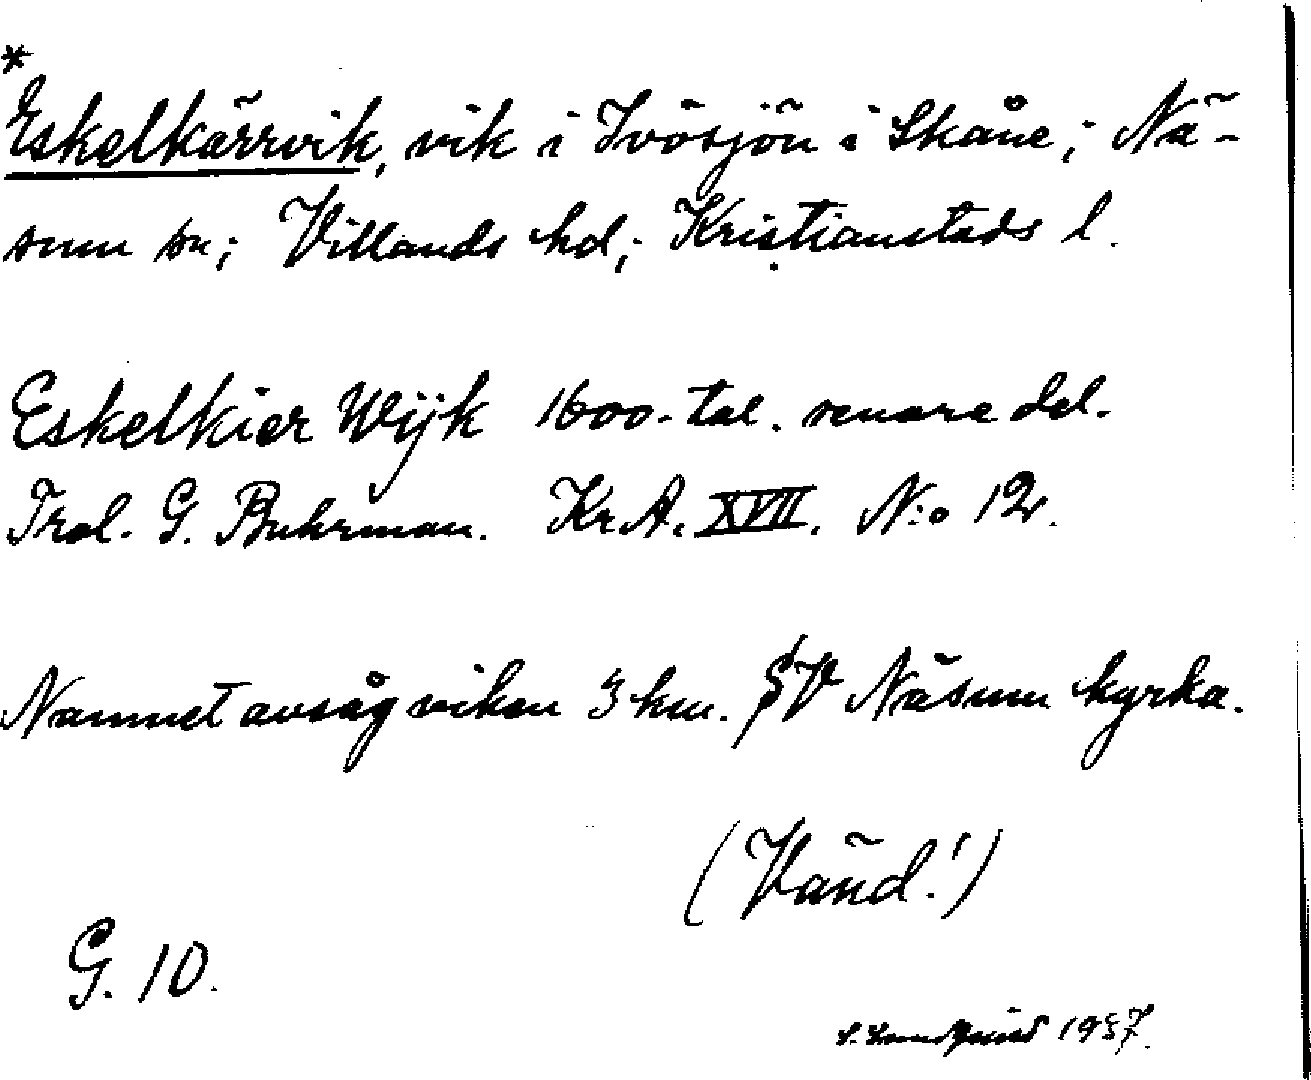 *
Eskelkärrvik, vik i Ivösjön i Skåne; Nä-
sum sn; Villands hd; Kristianstads l.
Eskelkier Wijk 1600-tal. senare del.
Trol. G. Buhrman. Kr.A. XVII. N:o 12.
Namnet avsåg viken 3 km. SV Näsum kyrka.
(Vänd!)
G. 10.
1957.